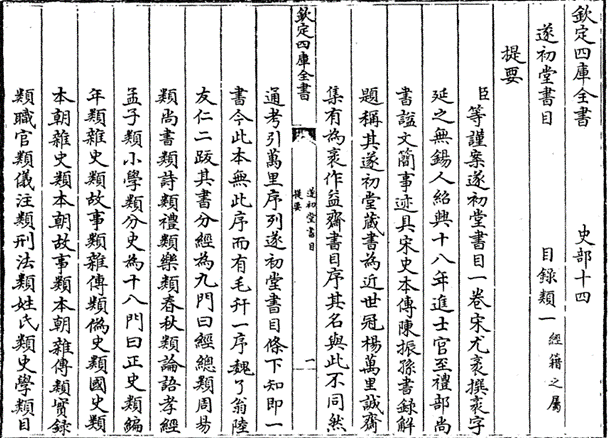 欽定四庫全書　史部十四
遂初堂書目　目録類一經籍之屬
提要
臣等謹案遂初堂書目一卷宋尤袤撰袤字
延之無錫人紹興十八年進士官至禮部尚
書諡文簡事迹具宋史本傳陳振孫書録解
題稱其遂初堂藏書為近世冠楊萬里誠齋
集有為袤作益齋書目序其名與此不同然
欽定四庫全書　遂初堂書目提要　一
通考引萬里序列遂初堂書目條下知即一
書今此本無此序而有毛幵一序魏了翁陸
友仁二跋其書分經為九門曰經總類周易
類尚書類詩類禮類樂類春秋類論語孝經
孟子類小學類分史為十八門曰正史類編
年類雜史類故事類雜傳類偽史類國史類
本朝雜史類本朝故事類本朝雜傳類實録
類職官類儀注類刑法類姓氏類史學類目